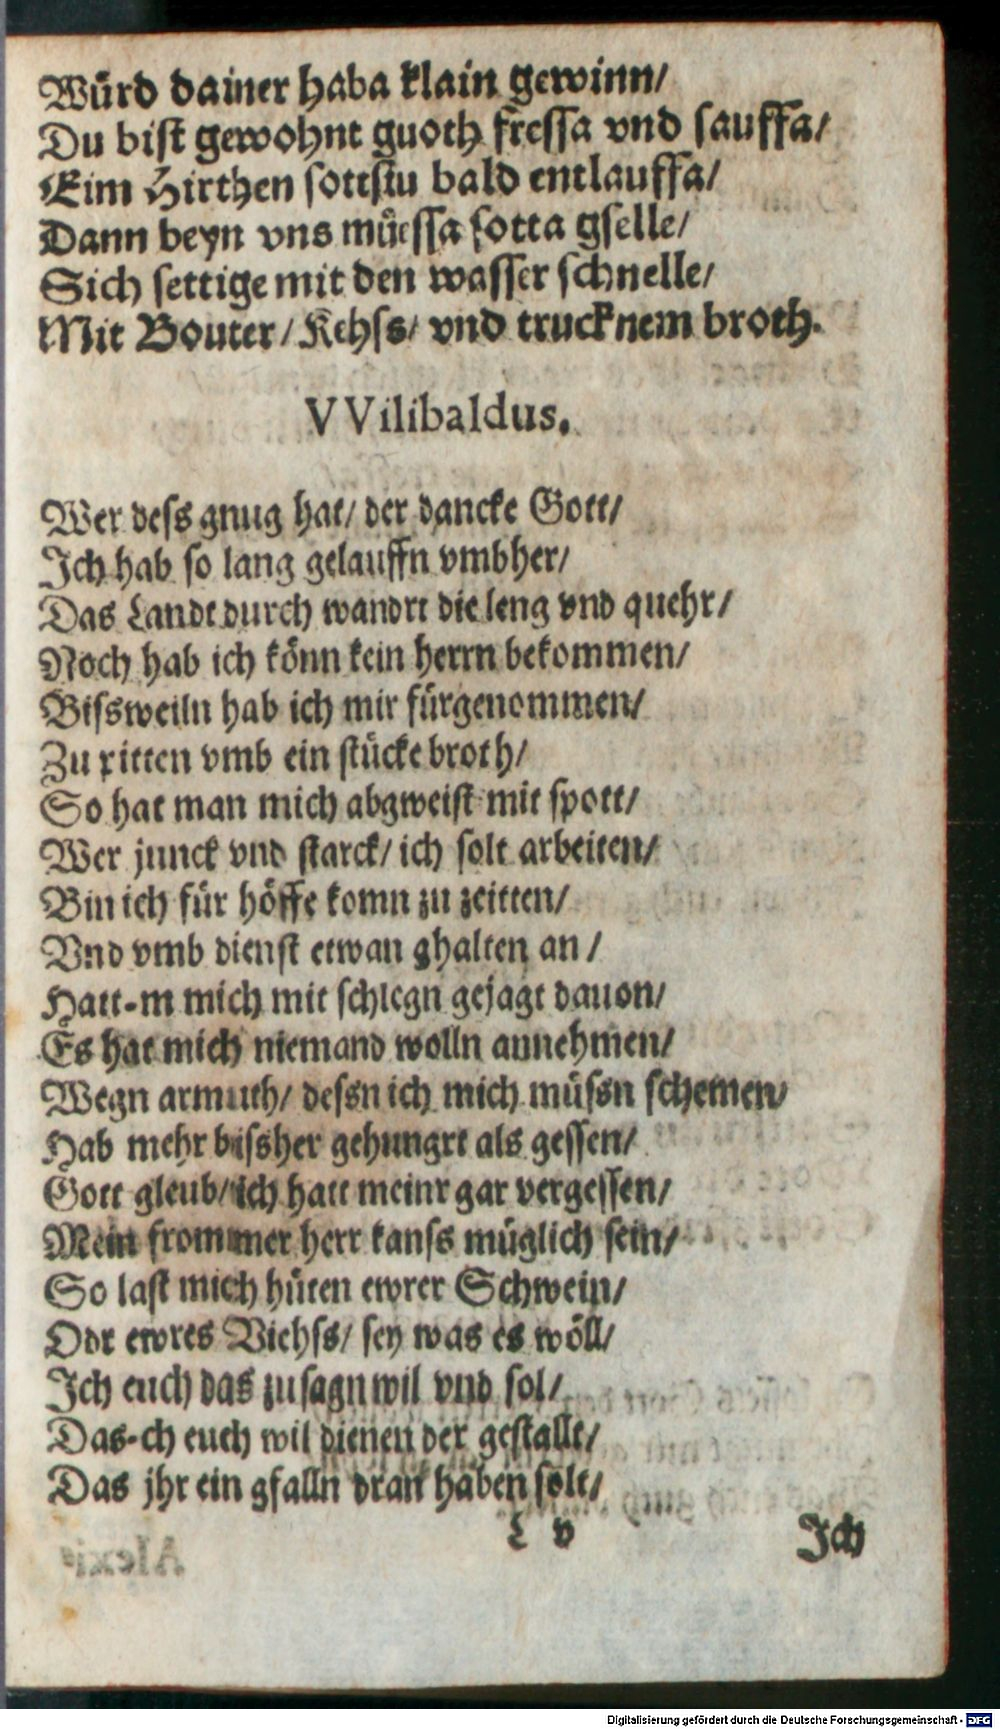 Würd dainer haba klain gewinn/
Du bist gewohnt guoth fressa vnd sauffa/
Eim Hirthen sottstu bald entlauffa/
Dann beyn vns müessa sotta gselle/
Sich settige mit den wasser schnelle/
Mit Bouter/ Kehss/ vnd trucknem broth.
VVilibaldus.
Wer dess gnug hat/ der dancke Gott/
Ich hab so lang gelauffn vmbher/
Das Landt durch wandrt die leng vnd quehr/
Noch hab ich könn kein herrn bekommen/
Bissweiln hab ich mir fürgenommen/
Zu ritten vmb ein stücke broth/
So hat man mich abgweist mit spott/
Wer junck vnd starck/ ich solt arbeiten/
Bin ich für höffe komn zu zeitten/
Vnd vmb dienst etwan ghalten an/
Hatt-m mich mit schlegn gejagt dauon/
Es hat mich niemand wolln annehmen/
Wegn armuth/ dessn ich mich müssn schemen/
Hab mehr bissher gehungrt als gessen/
Gott gleub/ ich hatt meinr gar vergessen/
Mein frommer herr kanss müglich sein/
So last mich hüten ewrer Schwein/
Odr ewres Viehss/ sey was es wöll/
Ich euch das zusagn wil vnd sol/
Das-ch euch wil dienen der gestallt/
Das jhr ein gfalln dran haben solt/
L v Ich
Digitalisierung gefördert durch die Deutsche Forschungsgemeinschaft - DFG